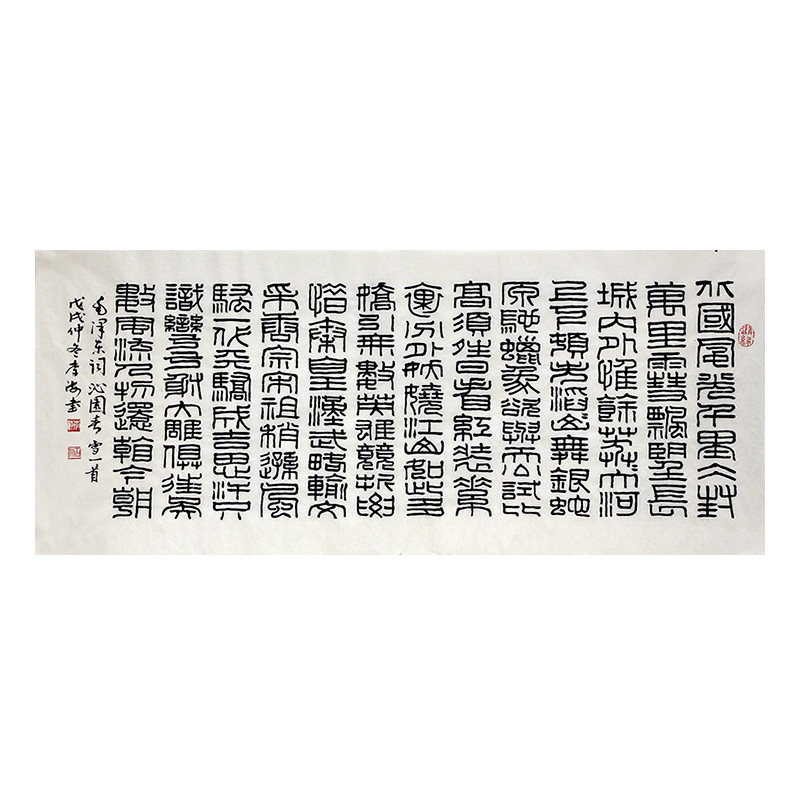 北國風光千里冰封
萬里雪飄望長
城内外惟餘莽大河
上下頓失滔山舞銀蛇
原馳蠟象欲與天公試比
高須晴日看紅裝素
裹分外妖嬈江山如此多
嬌引無數英雄競折腰
惜秦皇漢武略輸文
采唐宗宋祖稍遜風
騷一代天驕成吉思汗只
識彎弓射大雕俱往矣
數風流人物還看今朝
毛澤東詞沁園春雪一首
戊戌仲冬李海書